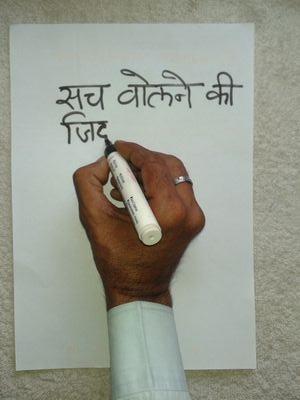 सच वोलने की
जिद